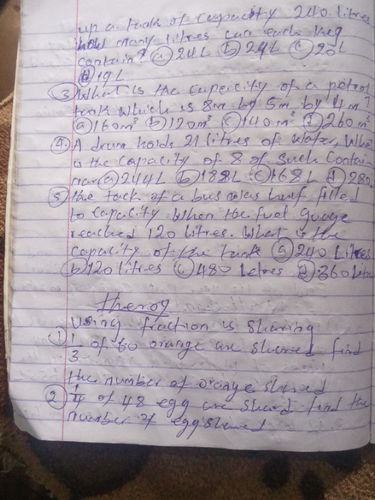 up a tank of Capacity 240 litres
how many litres can each keg
contain? (a) 24L (b) 29L (c) 20L
(d) 19L
(3) What is the capacity of a petrol
tank which is 8m by 5m by 4m?
(a) 160m³ (b) 120m² (c) 140m² (d) 260m²
(4) A drum holds 21 litres of water, What
is the capacity of 8 of such Contai
ner (a) 244L (b) 188L (c) 168L (d) 280
(5) the tank of a bus was half filled
to capacity. When the fuel guage
reached 120 litres. What is the
capacity of the tank (a) 240 Litres
(b) 120 litres (c) 480 Letres (d) 360 Litre
theroy
Using fraction is sharing
(1) 1/3 of 60 orange are shared find
the number of orange shared
(2) 1/4 of 48 egg are shared find the
number of egg shared